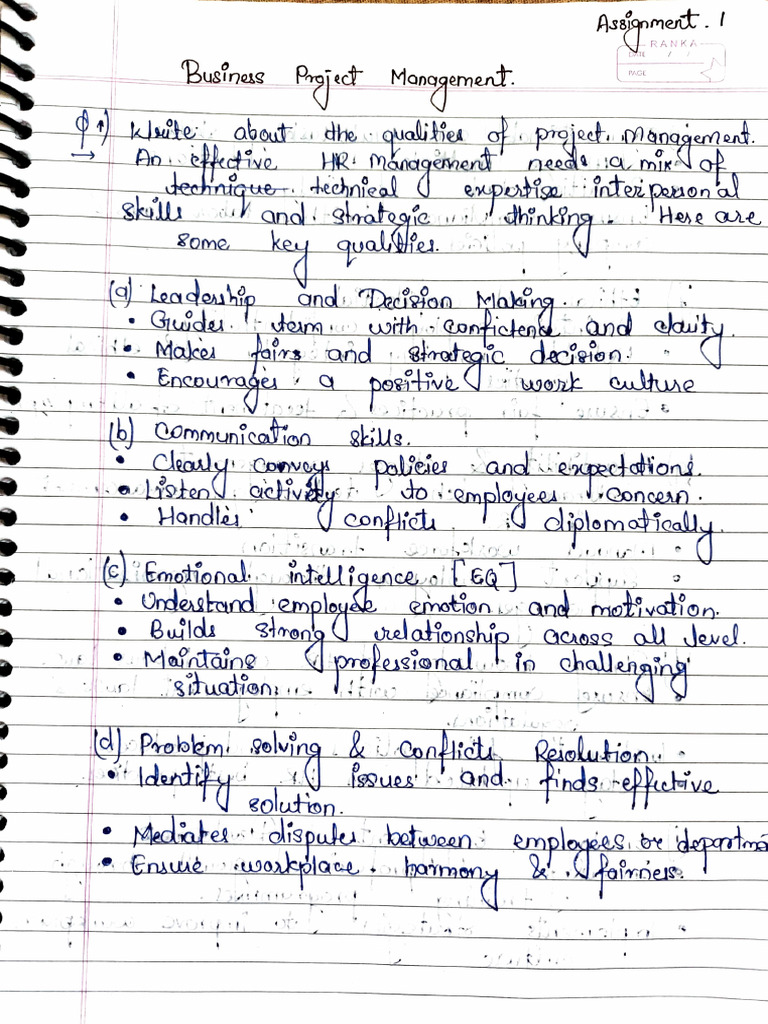 Assignment. 1
RANKA
DATE / /
PAGE
Business Project Management.
Q1) Write about the qualities of project management.
→ An effective HR management needs a mix of
technique technical expertise interpersonal
skills and strategic thinking. Here are
some key qualities.
(a) Leadership and Decision Making.
• Guides term with confictence and clarity.
• Makes fairs and strategic decision.
• Encourages a positive work culture
(b) Communication skills.
• Clearly conveys policies and expectations.
• Listen activity to employees concern.
• Handles conflicts diplomatically
(c) Emotional intelligence [EQ]
• Understand employee emotion and motivation.
• Builds strong relationship across all level.
• Maintains professional in challenging
situation.
(d) Problem solving & Conflicts Resolution.
• Identify issues and finds effective
solution.
• Mediates disputes between employees or departme
• Ensure workplace harmony & fairness.